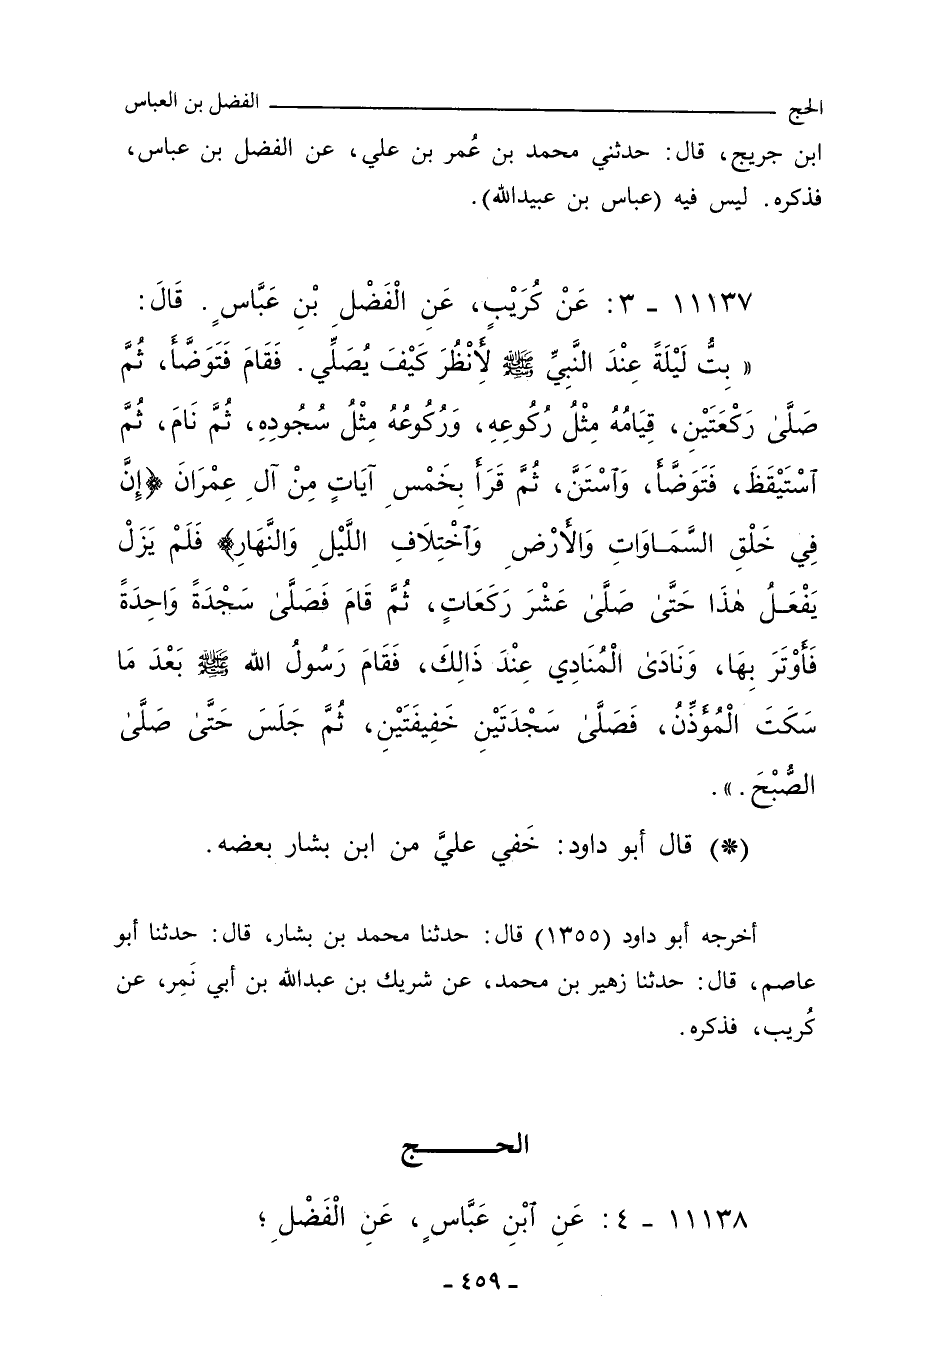 الحج ــــــــــ الفضل بن العباس
ابن جريج، قال: حدثني محمد بن عُمر بن علي، عن الفضل بن عباس،
فذكره. ليس فيه (عباس بن عبيدالله).
١١١٣٧ - ٣: عَنْ كُرَيْبٍ، عَنِ الْفَضْلِ بْنِ عَبَّاسٍ. قَالَ:
« بِتُّ لَيْلَةً عِنْدَ النَّبِيِّ ﷺ لِأَنْظُرَ كَيْفَ يُصَلِّي. فَقَامَ فَتَوَضَّأَ، ثُمَّ
صَلَّىٰ رَكْعَتَيْنِ، قِيَامُهُ مِثْلُ رُكُوعِهِ، وَرُكُوعُهُ مِثْلُ سُجُودِهِ، ثُمَّ نَامَ، ثُمَّ
ٱسْتَيْقَظَ، فَتَوَضَّأَ، وَٱسْتَنَّ، ثُمَّ قَرَأَ بِخَمْسِ آيَاتٍ مِنْ آلِ عِمْرَانَ ﴿إِنَّ
فِي خَلْقِ السَّمَاوَاتِ وَالْأَرْضِ وَٱخْتِلَافِ اللَّيْلِ وَالنَّهَارِ﴾ فَلَمْ يَزَلْ
يَفْعَلُ هٰذَا حَتَّىٰ صَلَّىٰ عَشْرَ رَكَعَاتٍ، ثُمَّ قَامَ فَصَلَّىٰ سَجْدَةً وَاحِدَةً
فَأَوْتَرَ بِهَا، وَنَادَىٰ الْمُنَادِي عِنْدَ ذَالِكَ، فَقَامَ رَسُولُ الله ﷺ بَعْدَ مَا
سَكَتَ الْمُؤَذِّنُ، فَصَلَّىٰ سَجْدَتَيْنِ خَفِيفَتَيْنِ، ثُمَّ جَلَسَ حَتَّىٰ صَلَّىٰ
الصُّبْحَ.».
(*) قال أبو داود: خَفي عليَّ من ابن بشار بعضه.
أخرجه أبو داود (١٣٥٥) قال: حدثنا محمد بن بشار، قال: حدثنا أبو
عاصم، قال: حدثنا زهير بن محمد، عن شريك بن عبدالله بن أبي نَمِر، عن
كُريب، فذكره.
الحـــــج
١١١٣٨ - ٤: عَنِ ٱبْنِ عَبَّاسٍ، عَنِ الْفَضْلِ؛
- ٤٥٩ -